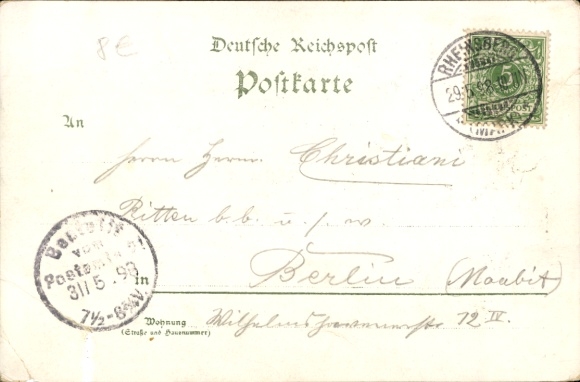 8 €
Deutsche Reichspost
Postkarte
RHEINSBERG
29.5.98
(MARK)
5
An
Herrn Herm. Christiani
Ritten b.b. u. s. w.
Bestellt
vom
Postamte
31/5.98
7½-8¾V.
in Berlin (Moabit)
Wohnung Wilhelmshavenerstr 72 IV.
(Straße und Hausnummer)